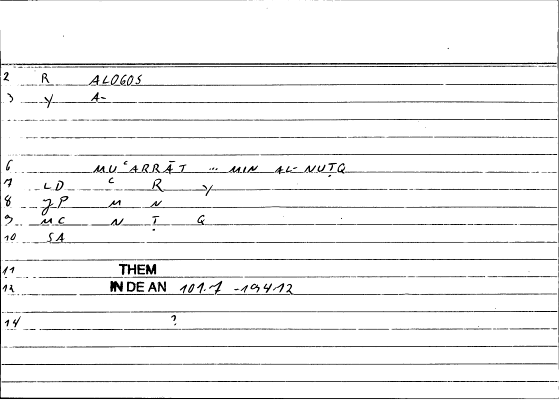 2 R ALOGOS
3 Y A-
6 MUʿARRĀT ... MIN AL-NUṬQ
7 LD ʿ R Y
8 JP M N
9 MC N Ṭ Q
10 SA
11 THEM
12 IN DE AN 101.7 -19412
14 ?